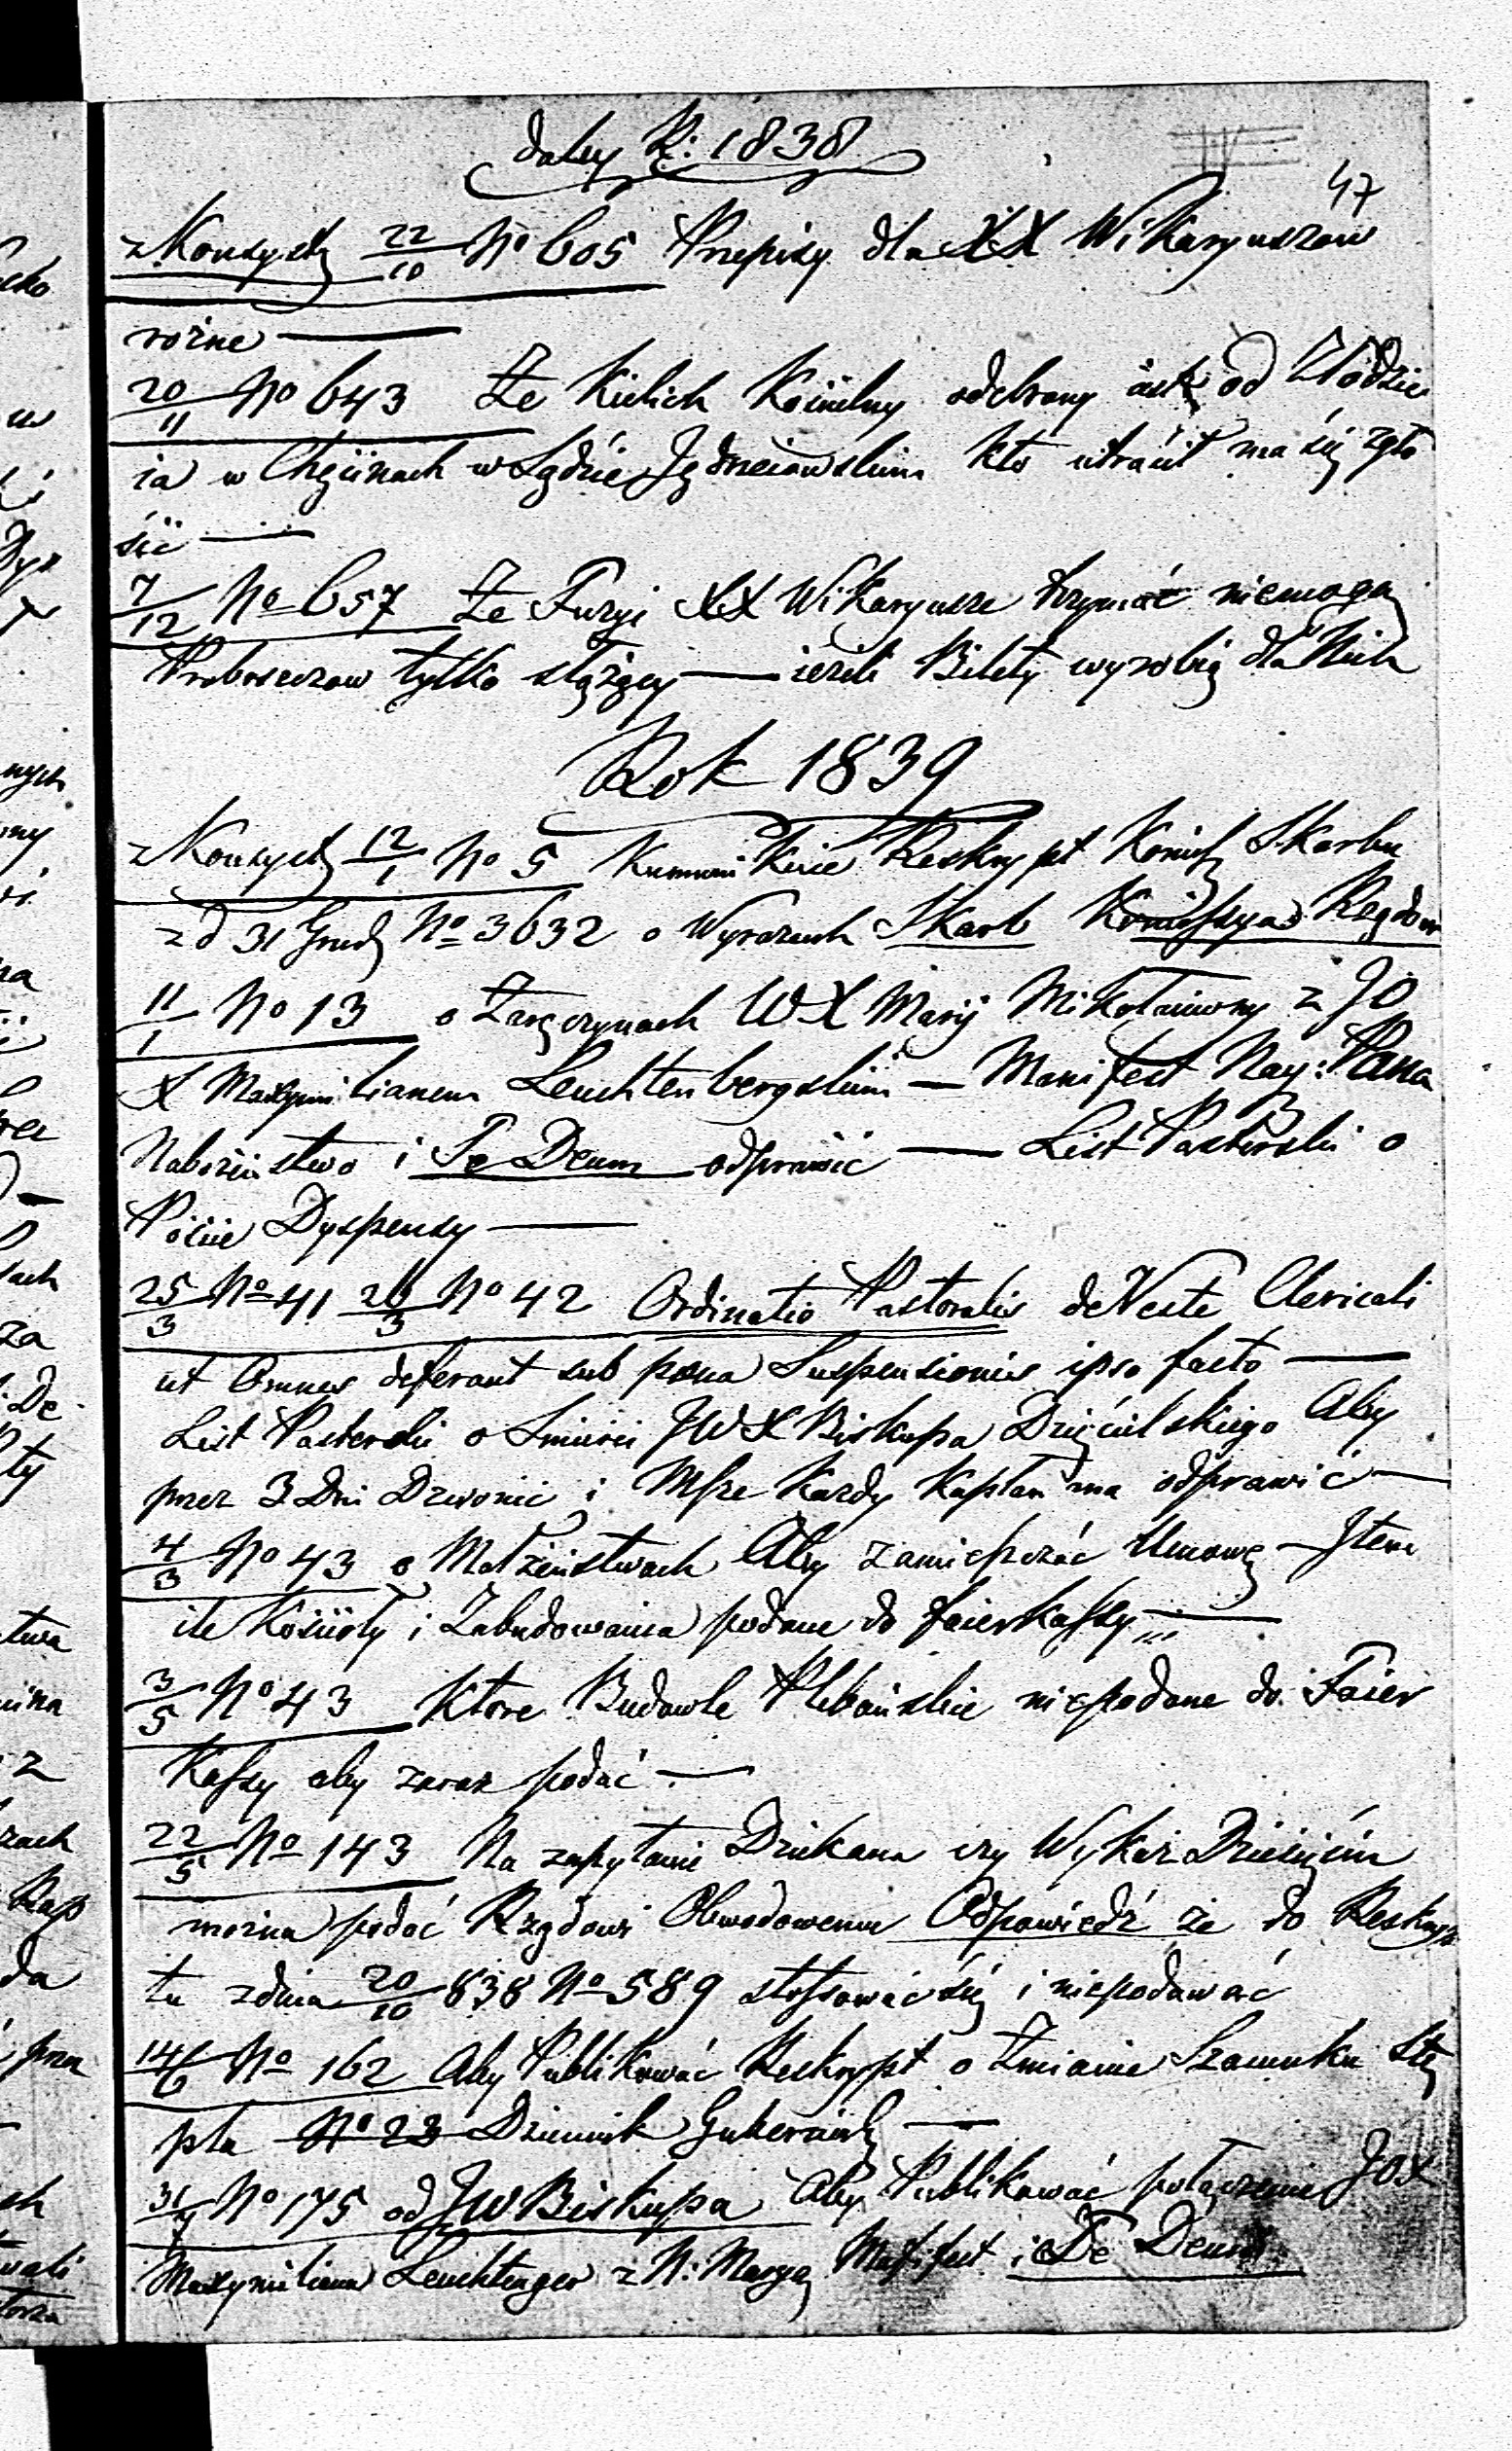 daley R: 1838
47
z Konsyst 22/10 No 605 Przepisy dla XX Wikaryuszow
rożne —
20/11 No 643 Że Kielich Kościelny odebrany iest od Złodzie
ia w Chęcinach w Sądzie Jędrzeiowskim kto utracił ma się zgło
sić —
7/12 No 657 Że Fuzyi XX Wikaryusze trzymać niemogą
Proboszczow tylko służący — ieżeli Bilety wyrobią dla Nich
Rok 1839
z Konsyst 12/1 No 5 Kummunikuie Reskrypt Kommiss Skarbu
z d 31 Grud No 3632 o Wyrazach Skarb Kommissya Rządow
11/1 No 13 o Zaręczynach WX Maryi Mikołaiewny z JO
X Maxymilianem Leuchtenbergskim — Manifest Nay: Pana
Nabożeństwo i Te Deum odprawić — List Pasterski o
Poście Dyspensy —
25/3 No 41 26/3 No 42 Ordinatio Pastoralis de Veste Clericali
ut Omnes deferant sub poena Suspensionis ipso facto —
List Pasterski o Smierci JWX Biskupa Dzięcielskiego Aby
przez 3 Dni Dzwonić i Msze Kazdy Kapłan ma odprawić —
4/3 No 43 o Małżeństwach Aby zamieszczać Umowę — Item
ile Kościoły i Zabudowania podane do faierkassy —
3/5 No 43 Ktore Budowle Plebańskie niepodane do Faier
Kassy aby zaraz podać —
22/5 No 143 Na zapytanie Dziekana czy Wykaz Dziesięcin
można podać Rządowi Obwodowemu Odpowiedź że do Reskryp
tu z dnia 20/10 838 No 589 stossować się i niepodawać
14/6 No 162 Aby Publikować Reskrypt o Zmianie Szacunku Stę
pla No 23 Dziennik Guberniah —
31/7 No 175 od JW Biskupa Aby Publikować połączenie JOX
Maxymiliana Leuchtenger z N: Maryą Manifest i Te Deum